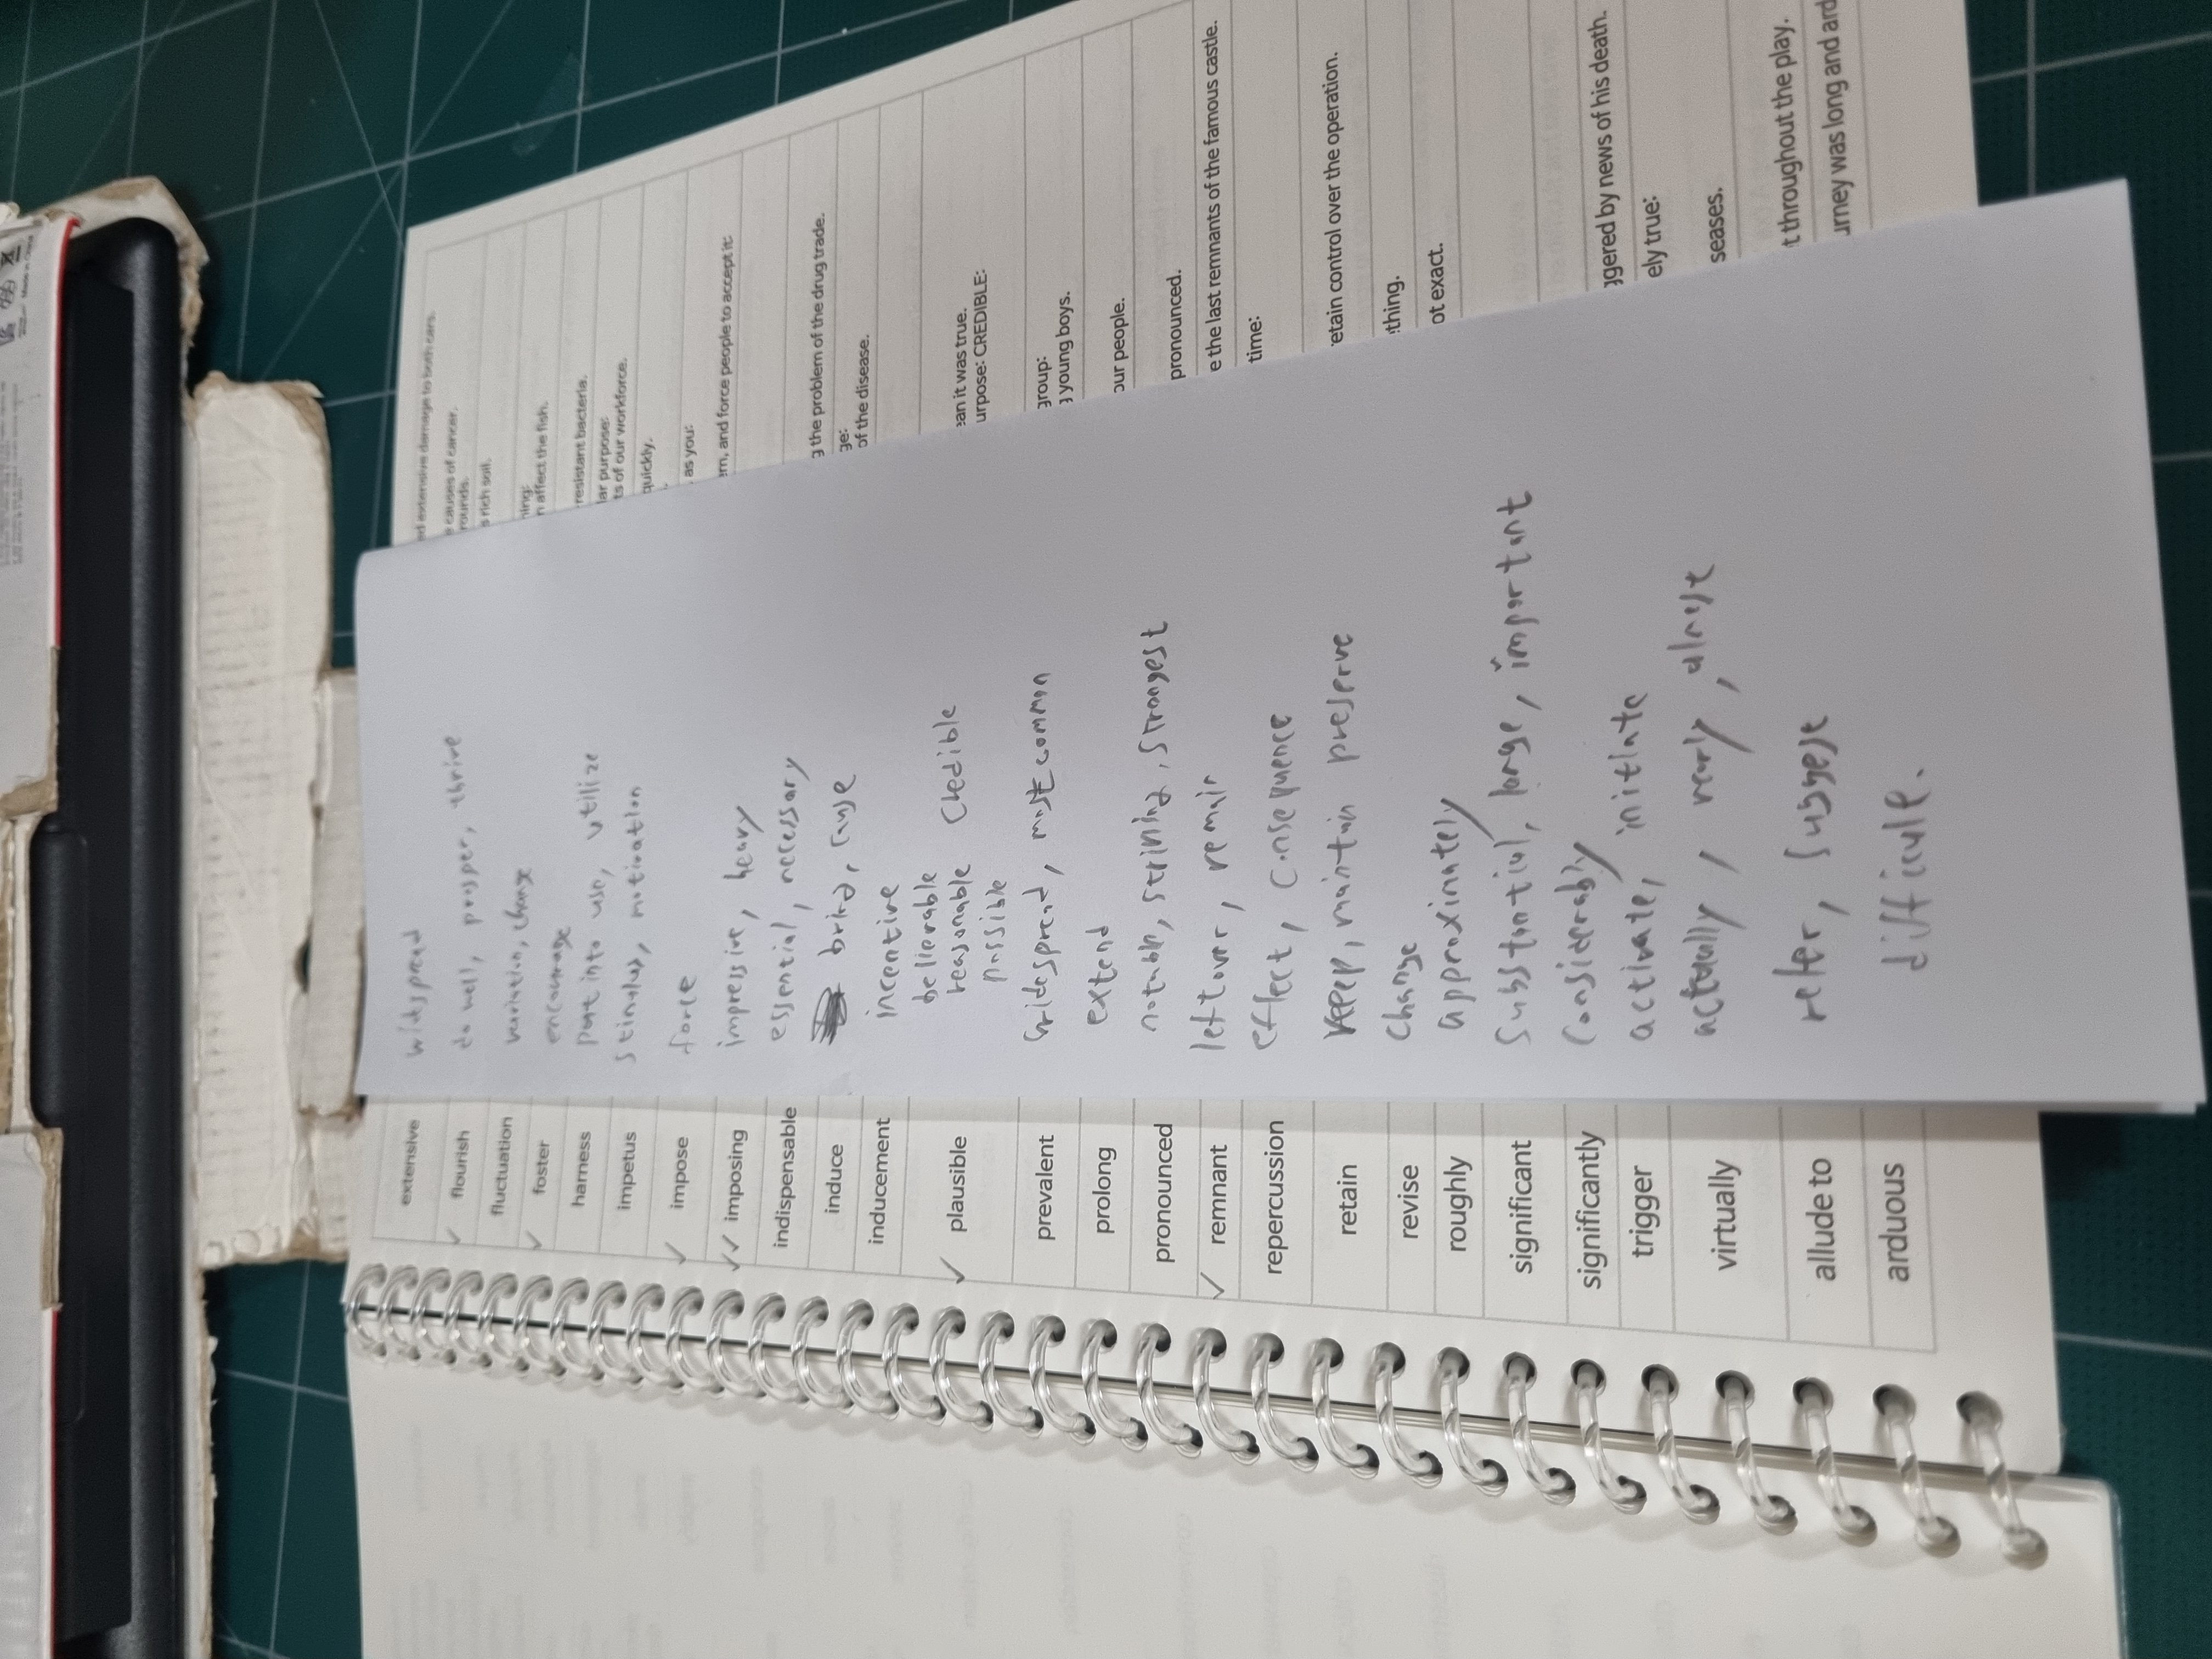 extensive
widspread
d extensive damage to both cars.
e causes of cancer.
✓ flourish
do well, prosper, thrive
rounds.
s rich soil.
fluctuation
variation, change
ning:
n affect the fish.
✓ foster
encourage
resistant bacteria.
harness
put into use, utilize
lar purpose:
ts of our workforce.
impetus
stimulus, motivation
quickly.
✓ impose
force
as you:
✓✓ imposing
impressive, heavy
em, and force people to accept it:
indispensable
essential, necessary
induce
bring, cause
g the problem of the drug trade.
ge:
of the disease.
inducement
incentive
✓ plausible
believable
reasonable credible
possible
ean it was true.
urpose: CREDIBLE:
prevalent
widespread, most common
group:
g young boys.
prolong
extend
our people.
pronounced
notable, striking, strongest
pronounced.
✓ remnant
leftover, remain
e the last remnants of the famous castle.
repercussion
effect, consequence
time:
retain
keep, maintain preserve
retain control over the operation.
revise
change
thing.
roughly
approximately
ot exact.
significant
substantial, large, important
significantly
considerably
trigger
activate, initiate
ggered by news of his death.
ely true:
virtually
actually, nearly, almost
seases.
allude to
refer, suggest
t throughout the play.
arduous
difficult.
urney was long and ard